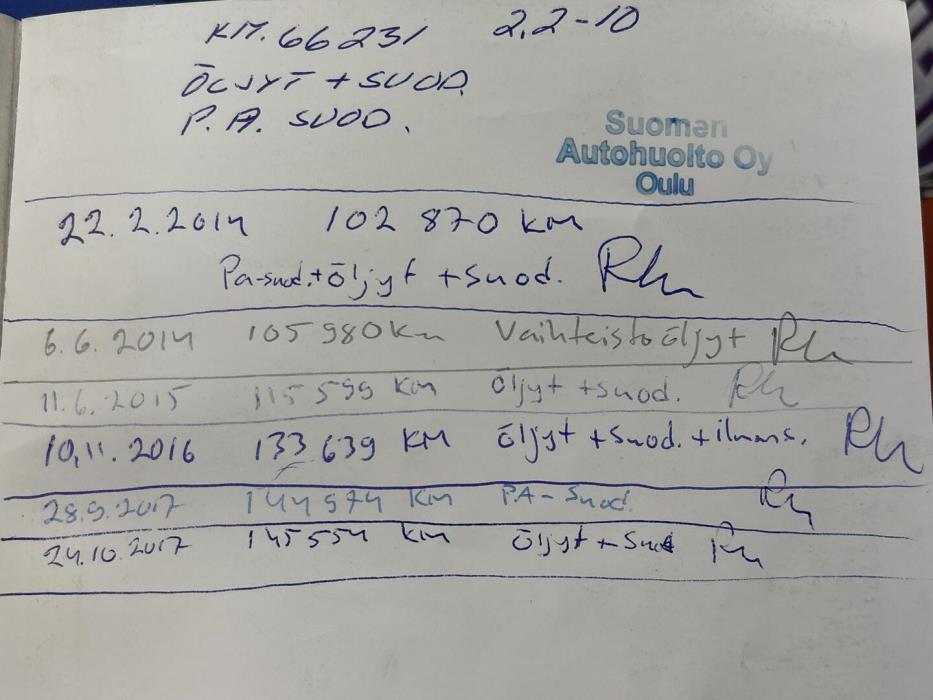 KM. 66231 2.2-10
ÖLJYT + SUOD.
P.A. SUOD.
Suomen
Autohuolto Oy
Oulu
22.2.2014 102 870 km
Pa-suod.+öljyt +suod. Rh
6.6.2014 105 980 km Vaihteistoöljyt Rh
11.6.2015 115 599 km Öljyt +suod. Rh
10.11.2016 133 639 KM Öljyt +Suod.+ilmans. Rh
28.9.2017 144 974 Km PA-Suod. Rh
24.10.2017 145 554 km Öljyt + Suod Rh